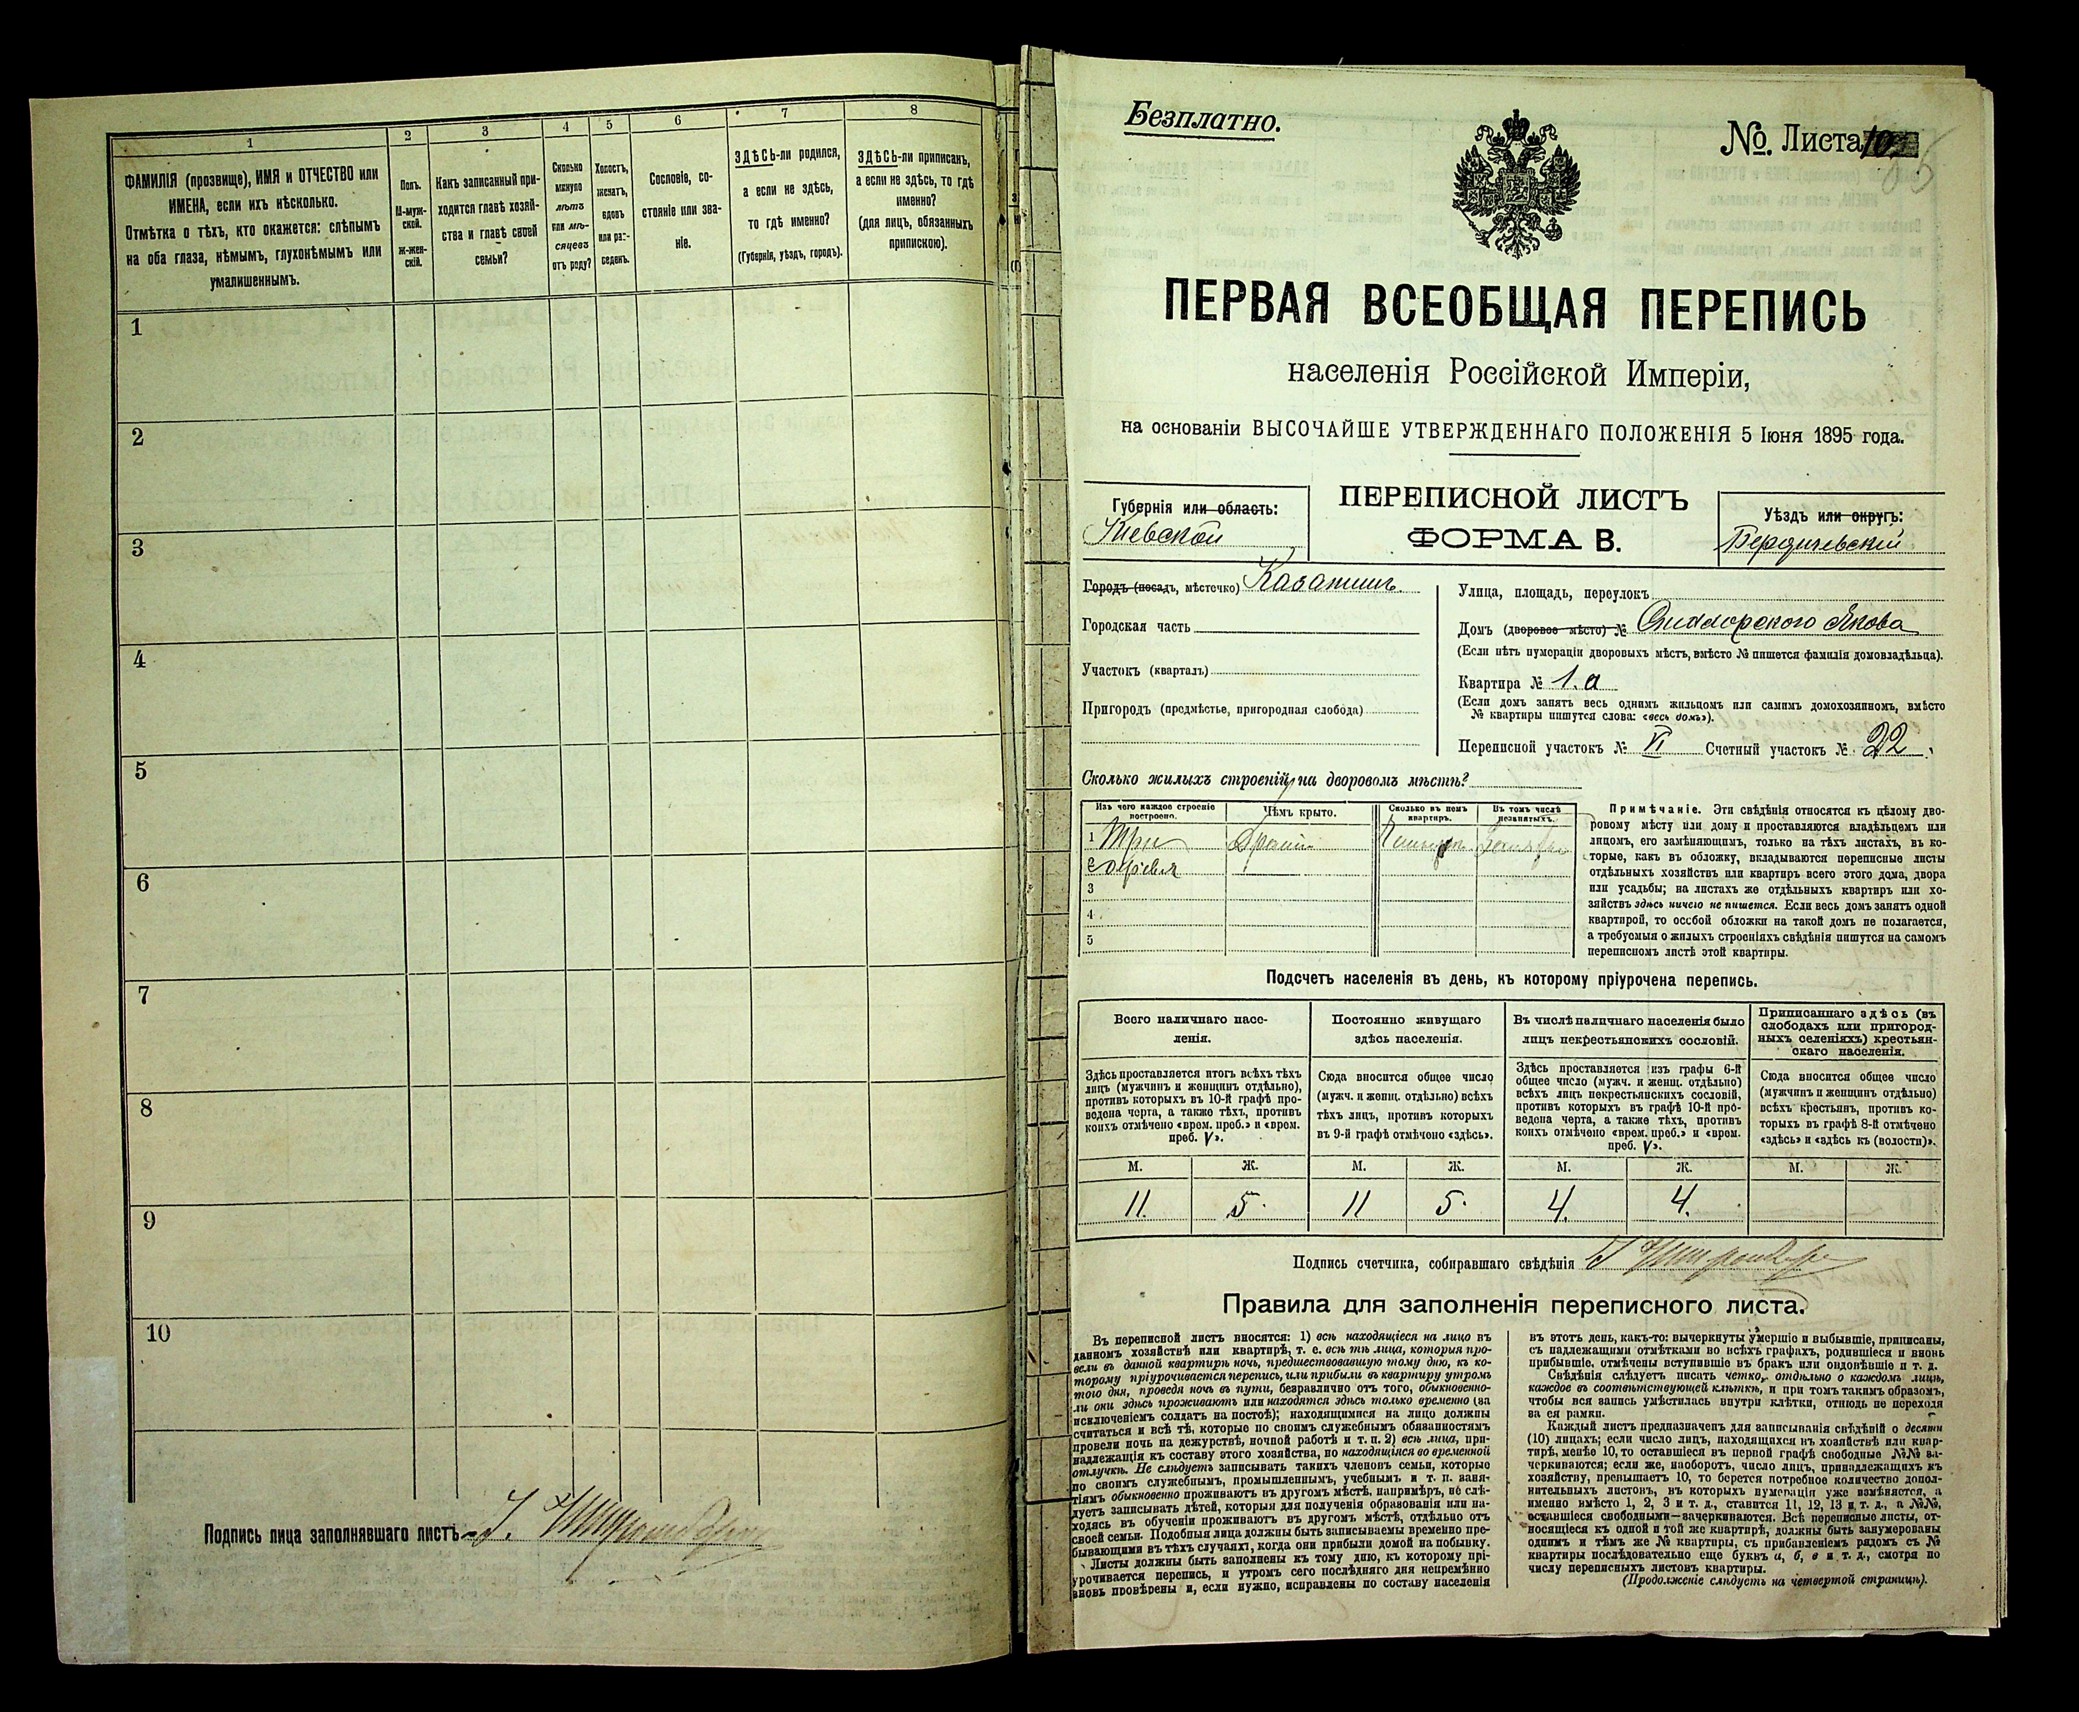 1
2
3
4
5
6
7
8
ФАМИЛІЯ (прозвище), ИМЯ и ОТЧЕСТВО или
ИМЕНА, если ихъ нѣсколько.
Отмѣтка о тѣхъ, кто окажется: слѣпымъ
на оба глаза, нѣмымъ, глухонѣмымъ или
умалишеннымъ.
Полъ.
М-муж-
ской.
Ж-жен-
скій.
Какъ записанный при-
ходится главѣ хозяй-
ства и главѣ своей
семьи?
Сколько
минуло
лѣтъ
или мѣ-
сяцевъ
отъ роду?
Холостъ,
женатъ,
вдовъ
или раз-
веденъ.
Сословіе, со-
стояніе или зва-
ніе.
ЗДѢСЬ-ли родился,
а если не здѣсь,
то гдѣ именно?
(Губернія, уѣздъ, городъ).
ЗДѢСЬ-ли приписанъ,
а если не здѣсь, то гдѣ
именно?
(для лицъ, обязанныхъ
припискою).
1
2
3
4
5
6
7
8
9
10
Подпись лица заполнявшаго листъ
Безплатно.
№. Листа 10.
ПЕРВАЯ ВСЕОБЩАЯ ПЕРЕПИСЬ
населенія Россійской Имперіи,
на основаніи ВЫСОЧАЙШЕ УТВЕРЖДЕННАГО ПОЛОЖЕНІЯ 5 Іюня 1895 года.
ПЕРЕПИСНОЙ ЛИСТЪ
ФОРМА В.
Губернія или область:
Кіевской
Уѣздъ или округъ:
Бердичевскій
Городъ (посадъ, мѣстечко) Казатинъ.
Городская часть
Участокъ (кварталъ)
Пригородъ (предмѣстье, пригородная слобода)
Улица, площадь, переулокъ
Домъ (дворовое мѣсто) № Якова
(Если нѣтъ нумераціи дворовыхъ мѣстъ, вмѣсто № пишется фамилія домовладѣльца).
Квартира № 1.а
(Если домъ занятъ весь однимъ жильцомъ или самимъ домохозяиномъ, вмѣсто
№ квартиры пишутся слова: «весь домъ»).
Переписной участокъ № VI Счетный участокъ № 22.
Сколько жилыхъ строеній на дворовомъ мѣстѣ?
Изъ чего каждое строеніе
построено.
Чѣмъ крыто.
Сколько въ немъ
квартиръ.
Въ томъ числѣ
незанятыхъ.
1
2
3
4
5
Примѣчаніе. Эти свѣдѣнія относятся къ цѣлому дво-
ровому мѣсту или дому и проставляются владѣльцемъ или
лицомъ, его замѣняющимъ, только на тѣхъ листахъ, въ ко-
торые, какъ въ обложку, вкладываются переписные листы
отдѣльныхъ хозяйствъ или квартиръ всего этого дома, двора
или усадьбы; на листахъ же отдѣльныхъ квартиръ или хо-
зяйствъ здѣсь ничего не пишется. Если весь домъ занятъ одной
квартирой, то особой обложки на такой домъ не полагается,
а требуемыя о жилыхъ строеніяхъ свѣдѣнія пишутся на самомъ
переписномъ листѣ этой квартиры.
Подсчетъ населенія въ день, къ которому пріурочена перепись.
Всего наличнаго насе-
ленія.
Здѣсь проставляется итогъ всѣхъ тѣхъ
лицъ (мужчинъ и женщинъ отдѣльно),
противъ которыхъ въ 10-й графѣ про-
ведена черта, а также тѣхъ, противъ
коихъ отмѣчено «врем. преб.» и «врем.
преб. V».
Постоянно живущаго
здѣсь населенія.
Сюда вносится общее число
(мужч. и женщ. отдѣльно) всѣхъ
тѣхъ лицъ, противъ которыхъ
въ 9-й графѣ отмѣчено «здѣсь».
Въ числѣ наличнаго населенія было
лицъ некрестьянскихъ сословій.
Здѣсь проставляется изъ графы 6-й
общее число (мужч. и женщ. отдѣльно)
всѣхъ лицъ некрестьянскихъ сословій,
противъ которыхъ въ графѣ 10-й про-
ведена черта, а также тѣхъ, противъ
коихъ отмѣчено «врем. преб.» и «врем.
преб. V».
Приписаннаго здѣсь (въ
слободахъ или пригород-
ныхъ селеніяхъ) крестьян-
скаго населенія.
Сюда вносится общее число
(мужчинъ и женщинъ отдѣльно)
всѣхъ крестьянъ, противъ ко-
торыхъ въ графѣ 8-й отмѣчено
«здѣсь» и «здѣсь къ (волости)».
М. Ж. М. Ж. М. Ж. М. Ж.
11. 5. 11 5. 4. 4.
Подпись счетчика, собиравшаго свѣдѣнія
Правила для заполненія переписного листа.
Въ переписной листъ вносятся: 1) всѣ находящіеся на лицо въ
данномъ хозяйствѣ или квартирѣ, т. е. всѣ тѣ лица, которыя про-
вели въ данной квартирѣ ночь, предшествовавшую тому дню, къ ко-
торому пріурочивается перепись, или прибыли въ квартиру утромъ
того дня, проведя ночь въ пути, безразлично отъ того, обыкновенно-
ли они здѣсь проживаютъ или находятся здѣсь только временно (за
исключеніемъ солдатъ на постоѣ); находящимися на лицо должны
считаться и всѣ тѣ, которые по своимъ служебнымъ обязанностямъ
провели ночь на дежурствѣ, ночной работѣ и т. п. 2) всѣ лица, при-
надлежащія къ составу этого хозяйства, но находящіяся во временной
отлучкѣ. Не слѣдуетъ записывать такихъ членовъ семьи, которые
по своимъ служебнымъ, промышленнымъ, учебнымъ и т. п. заня-
тіямъ обыкновенно проживаютъ въ другомъ мѣстѣ, напримѣръ, не слѣ-
дуетъ записывать дѣтей, которыя для полученія образованія или на-
ходясь въ обученіи проживаютъ въ другомъ мѣстѣ, отдѣльно отъ
своей семьи. Подобныя лица должны быть записываемы временно пре-
бывающими въ тѣхъ случаяхъ, когда они прибыли домой на побывку.
Листы должны быть заполнены къ тому дню, къ которому прі-
урочивается перепись, и утромъ сего послѣдняго дня непремѣнно
вновь провѣрены и, если нужно, исправлены по составу населенія
въ этотъ день, какъ-то: вычеркнуты умершіе и выбывшіе, приписаны,
съ надлежащими отмѣтками во всѣхъ графахъ, родившіеся и вновь
прибывшіе, отмѣчены вступившіе въ бракъ или овдовѣвшіе и т. д.
Свѣдѣнія слѣдуетъ писать четко, отдѣльно о каждомъ лицѣ,
каждое въ соотвѣтствующей клѣткѣ, и при томъ такимъ образомъ,
чтобы вся запись умѣстилась внутри клѣтки, отнюдь не переходя
за ея рамки.
Каждый листъ предназначенъ для записыванія свѣдѣній о десяти
(10) лицахъ; если число лицъ, находящихся въ хозяйствѣ или квар-
тирѣ, менѣе 10, то оставшіеся въ первой графѣ свободные №№ за-
черкиваются; если же, наоборотъ, число лицъ, принадлежащихъ къ
хозяйству, превышаетъ 10, то берется потребное количество допол-
нительныхъ листовъ, въ которыхъ нумерація уже измѣняется, а
именно вмѣсто 1, 2, 3 и т. д., ставится 11, 12, 13 и т. д., а №№,
оставшіеся свободными—зачеркиваются. Всѣ переписные листы, от-
носящіеся къ одной и той же квартирѣ, должны быть занумерованы
однимъ и тѣмъ же № квартиры, съ прибавленіемъ рядомъ съ №
квартиры послѣдовательно еще буквъ а, б, в и т. д., смотря по
числу переписныхъ листовъ квартиры.
(Продолженіе слѣдуетъ на четвертой страницѣ).